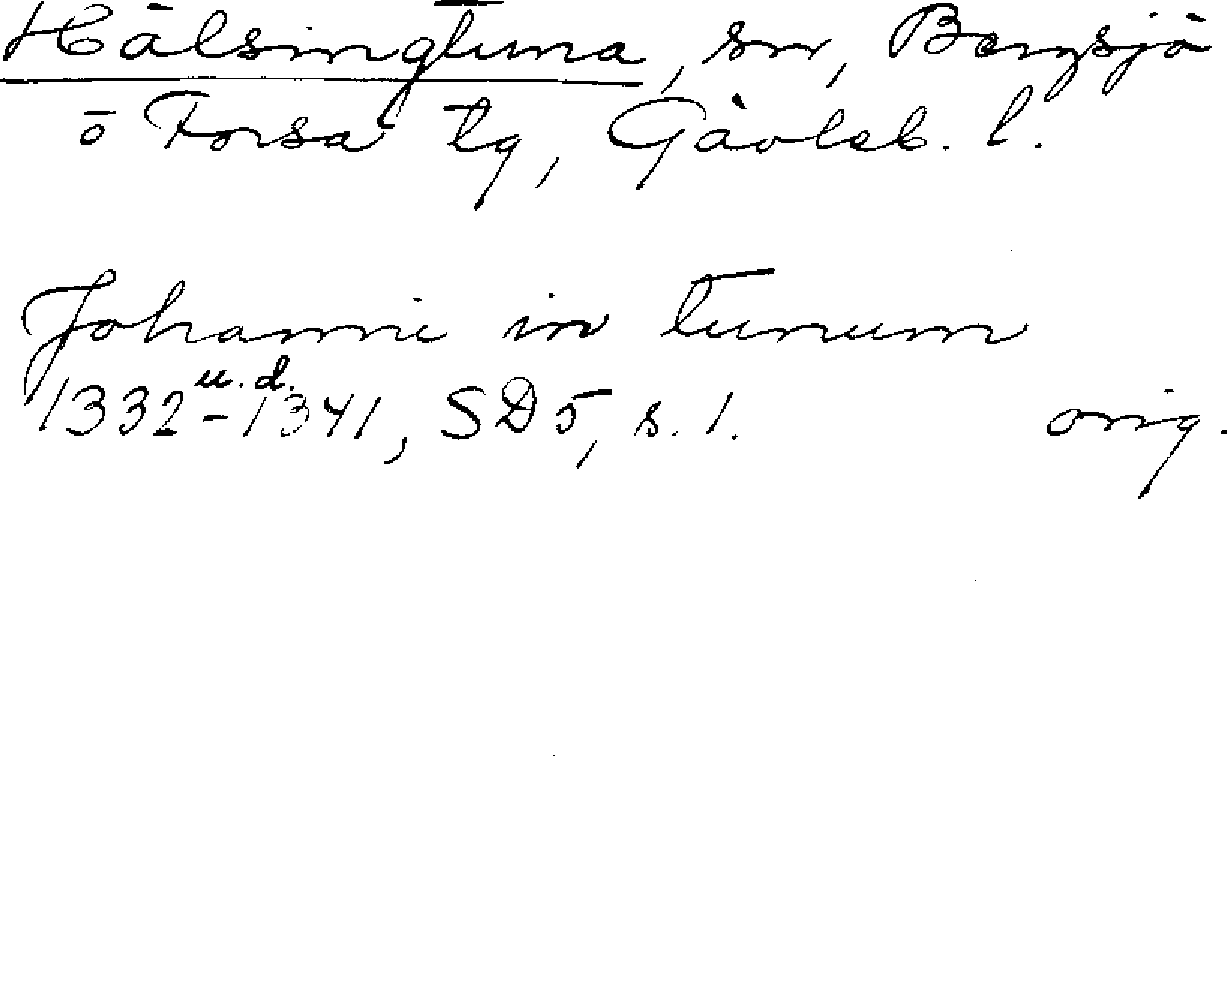 Hälsingtuna, sn, Bergsjö
o Forsa tg, Gävleb. l.
Johanni in tunum
1332 u.d. - 1341, SD5, s. 1. orig.